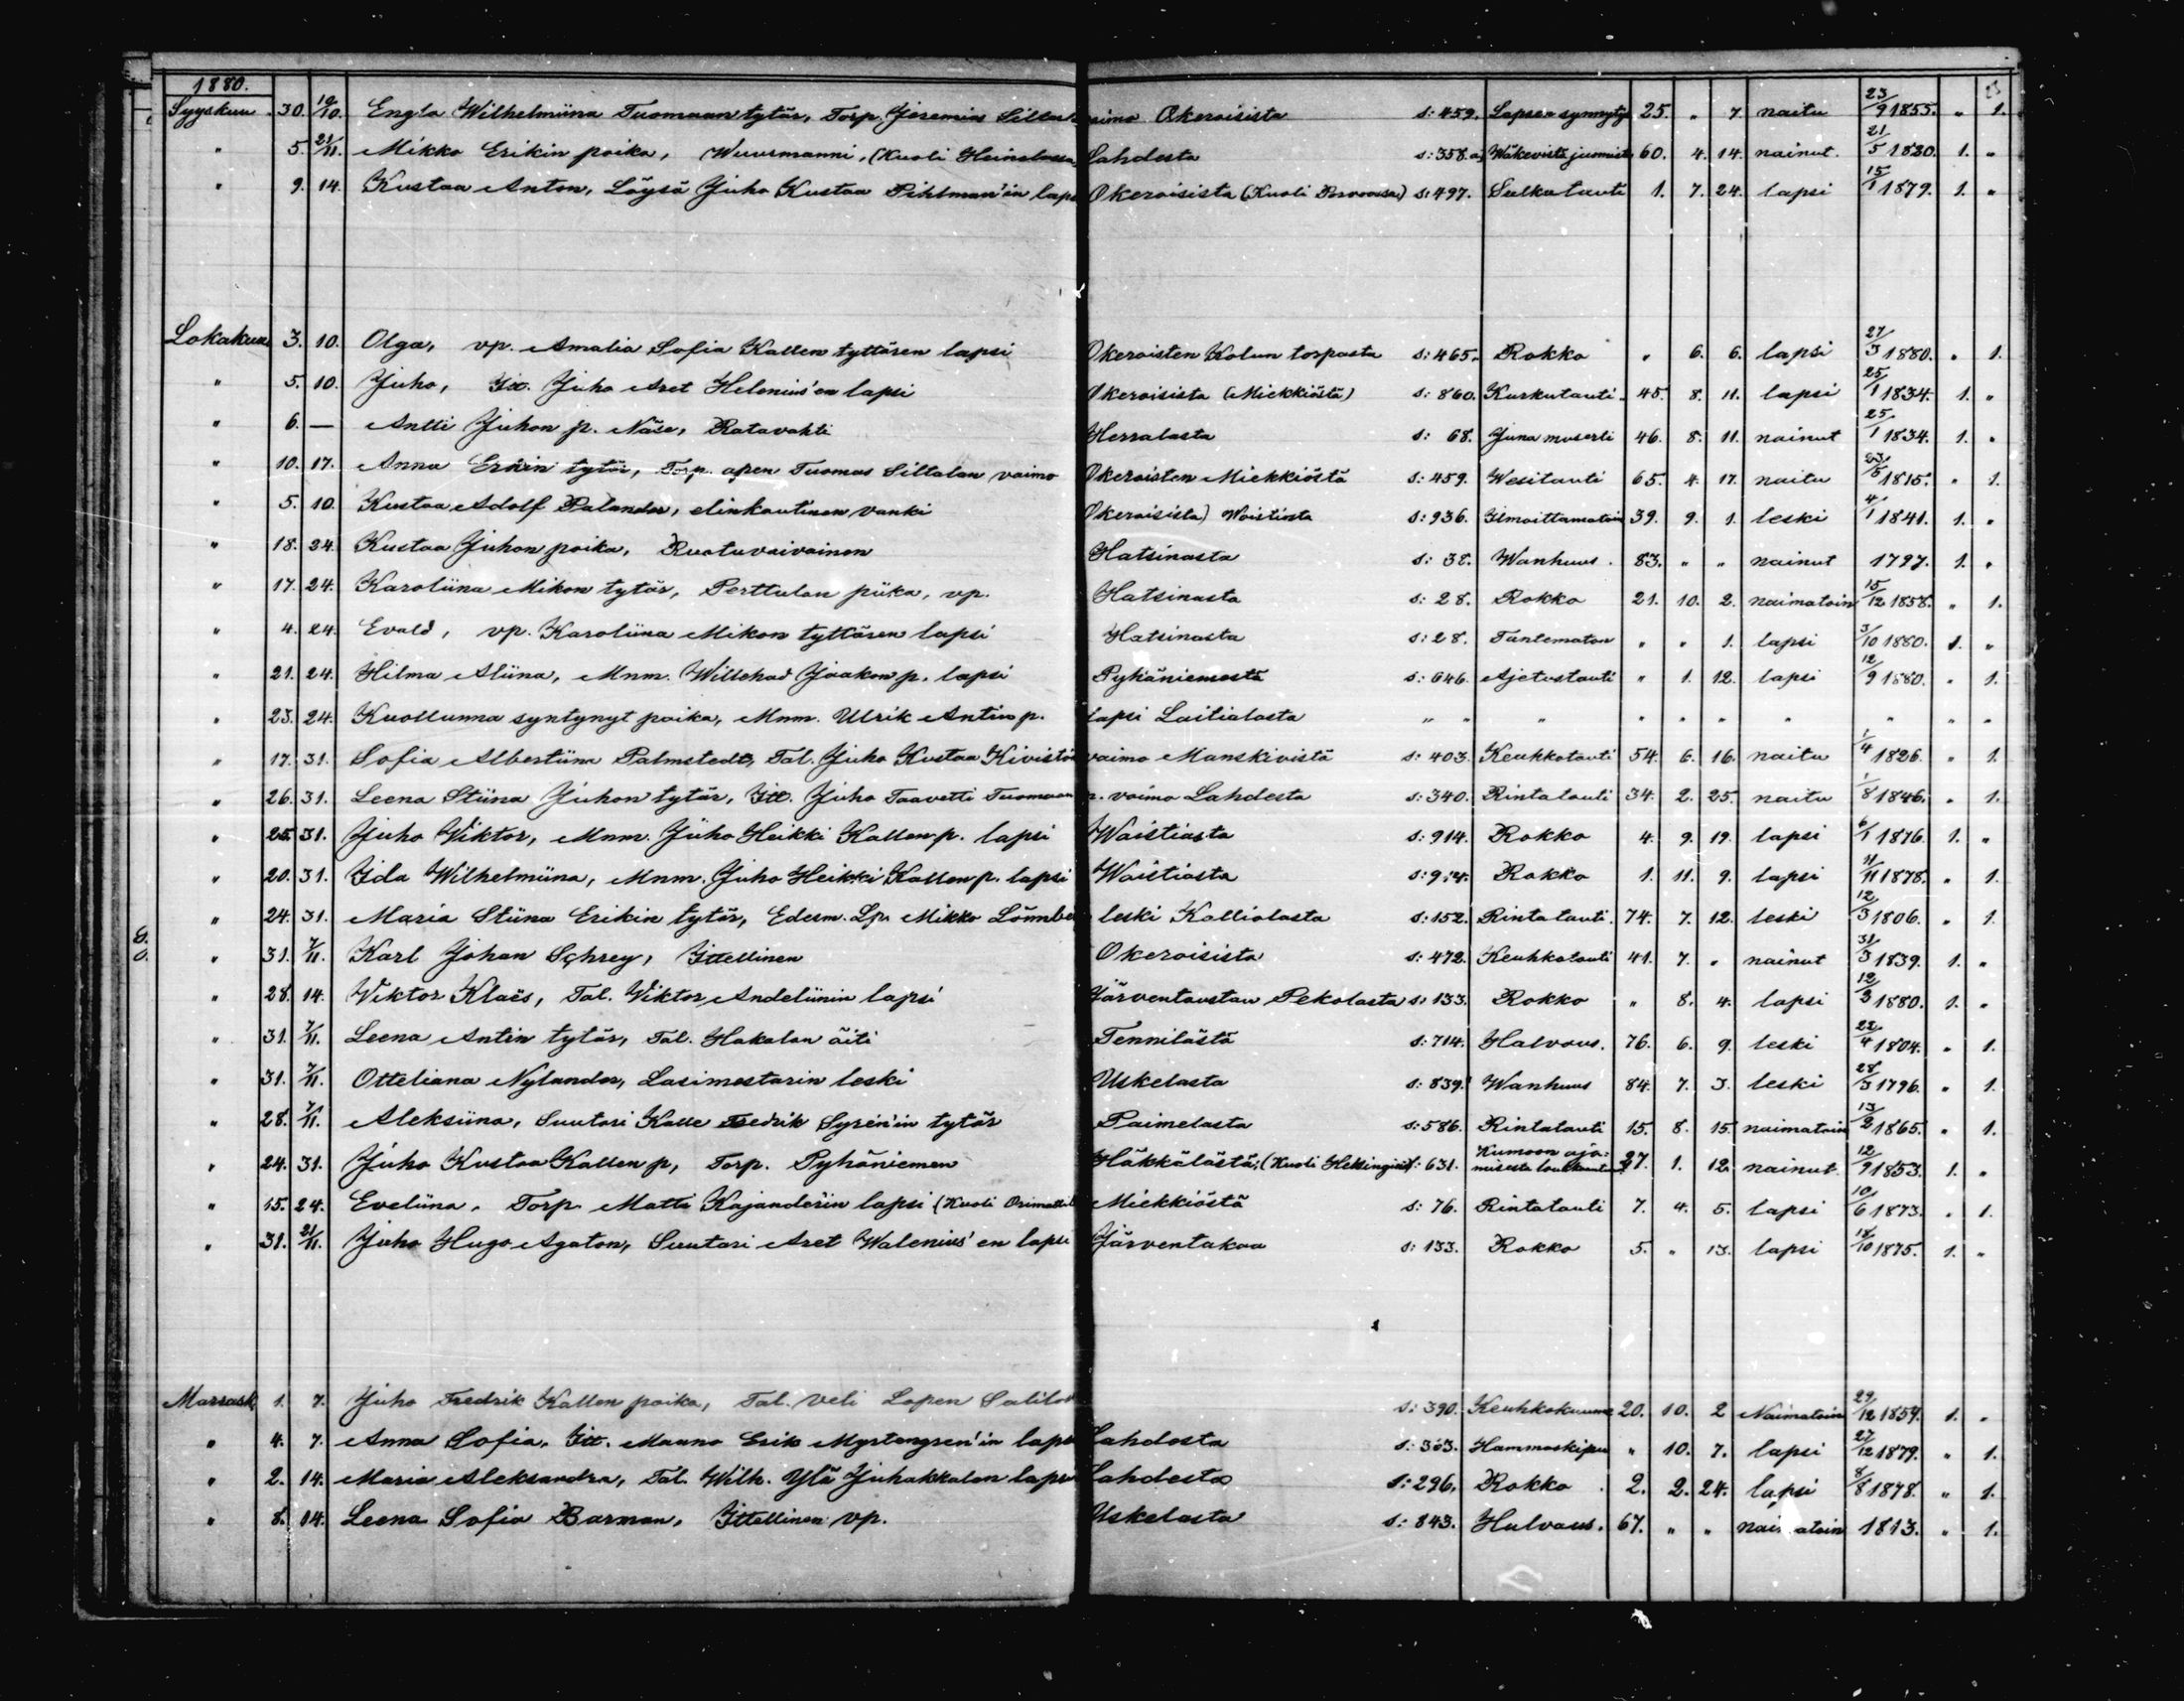 1880.
Syyskuu 30. 10/10. Engla Wilhelmiina Tuomaan tytär, Torp. Jeremias vaimo Okeroisista s: 459. Lapsen synnytys 25. " 7. naitu 23/9 1855. " 1.
" 5. 21/11. Mikko Erikin poika, Wuursmanni, (Kuoli Heinolassa Lahdesta s: 358. a) Wäkevistä juomista 60. 4. 14. nainut. 21/5 1820. 1. "
" 9. 14. Kustaa Anton, Löysä Juho Kustaa Pihlman'in lapsi Okeroisista (Kuoli Porvoossa) s: 497. Salkotauti 1. 7. 24. lapsi 15/1 1879. 1. "
Lokakuu 3. 10. Olga, vp. Amalia Sofia Kallen tyttären lapsi Okeroisten Kolun torpasta s: 465. Rokko " 6. 6. lapsi 27/3 1880. " 1.
" 5. 10. Juho, Itt. Juho Aret Helenius'en lapsi Okeroisista (Miekkiöstä) s: 860. Kurkutauti 45. 8. 11. lapsi 25/1 1834. 1. "
" 6. — Antti Juhon p. Näse, Ratavahti Herralasta s: 68. Juna muserti 46. 8. 11. nainut 25/1 1834. 1. "
" 10. 17. Anna Erikin tytär, Torp. apen Tuomas Siltalan vaimo Okeroisten Miekkiöstä s: 459. Wesitauti 65. 4. 17. naitu 23/5 1815. " 1.
" 5. 10. Kustaa Adolf Palander, elinkautinen vanki Okeroisista) Woistiosta s: 936. Ilmoittamatoin 39. 9. 1. leski 4/1 1841. 1. "
" 18. 24. Kustaa Juhon poika, Ruotuvaivainen Hatsinasta s: 38. Wanhuus. 83. " " nainut 1797. 1. "
" 17. 24. Karoliina Mikon tytär, Perttulan piika, vp. Hatsinasta s: 28. Rokko 21. 10. 2. naimatoin 15/12 1858. " 1.
" 4. 24. Evald, vp. Karoliina Mikon tyttären lapsi Hatsinasta s: 28. Tuntematon " " 1. lapsi 3/10 1880. 1. "
" 21. 24. Hilma Aliina, Mnm. Willehad Jaakon p. lapsi Pyhäniemestä s: 646. Ajetustauti " 1. 12. lapsi 12/9 1880. " 1.
" 23. 24. Kuollunna syntynyt poika, Mnm. Ulrik Antin p. lapsi Laitialasta " " " " " " " " " "
" 17. 31. Sofia Albertiina Palmstedt, Tal. Juho Kustaa Kivistön vaimo Manskivistä s: 403. Keuhkotauti 54. 6. 16. naitu 1/4 1826. " 1.
" 26. 31. Leena Stiina Juhon tytär, Itt. Juho Taavetti Tuomaan p. vaimo Lahdesta s: 340. Rintatauti 34. 2. 25. naitu 1/8 1846. " 1.
" 25. 31. Juho Wiktor, Mnm. Juho Heikki Kallen p. lapsi Waistiasta s: 914. Rokko 4. 9. 19. lapsi 6/1 1876. 1. "
" 20. 31. Ida Wilhelmiina, Mnm. Juho Heikki Kallen p. lapsi Waistiasta s: 914. Rokko 1. 11. 9. lapsi 11/11 1878. " 1.
" 24. 31. Maria Stiina Erikin tytär, Edesm. Lp. Mikko Lönnber leski Kalliolasta s: 152. Rintatauti. 74. 7. 12. leski 12/3 1806. " 1.
" 31. 7/11. Karl Johan Schrey, Ittellinen Okeroisista s: 472. Keuhkotauti 41. 7. " nainut 31/3 1839. 1. "
" 28. 14. Wiktor Klaës, Tal. Wiktor Andeliinin lapsi Järventaustan Pekolasta s: 133. Rokko " 8. 4. lapsi 12/3 1880. 1. "
" 31. 7/11. Leena Antin tytär, Tal. Hakalan äiti Tennilästä s: 714. Halvaus. 76. 6. 9. leski 22/4 1804. " 1.
" 31. 7/11. Otteliana Nylander, Lasimestarin leski Uskelasta s: 839. Wanhuus 84. 7. 3. leski 28/3 1796. " 1.
" 28. 7/11. Aleksiina, Suutari Kalle Fredrik Syrén'in tytär Paimelasta s: 586. Rintatauti 15. 8. 15. naimatoin 13/2 1865. " 1.
" 24. 31. Juho Kustaa Kallen p, Torp. Pyhäniemen Häkkälästä, (Kuoli Helsingissä s: 631. Kumoon aja- misesta 27. 1. 12. nainut 12/9 1853. 1. "
" 15. 24. Eveliina, Torp. Matti Kajanderin lapsi (Kuoli Miekkiöstä s: 76. Rintatauti 7. 4. 5. lapsi 10/6 1873. " 1.
" 31. 21/11. Juho Hugo Agaton, Suutari Aret Walenius'en lapsi Järventakaa s: 133. Rokko 5. " 13. lapsi 18/10 1875. 1. "
Marrask. 1. 7. Juho Fredrik Kallen poika, Tal. veli Lapen s: 390. Keuhkokuume 20. 10. 2 Naimatoin 29/12 1859. 1. "
" 4. 7. Anna Sofia, Itt. Mauno Erik Myrtengren'in lapsi Lahdesta s: 363. Hammaskipu " 10. 7. lapsi 27/12 1879. " 1.
" 2. 14. Maria Aleksandra, Tal. Wilh. Ylä Juhakkalan lapsi Lahdesta s: 296. Rokko. 2. 2. 24. lapsi 8/8 1878. " 1.
" 8. 14. Leena Sofia Barman, Ittellinen vp. Uskelasta s: 843. Halvaus. 67. " " naimatoin 1813. " 1.